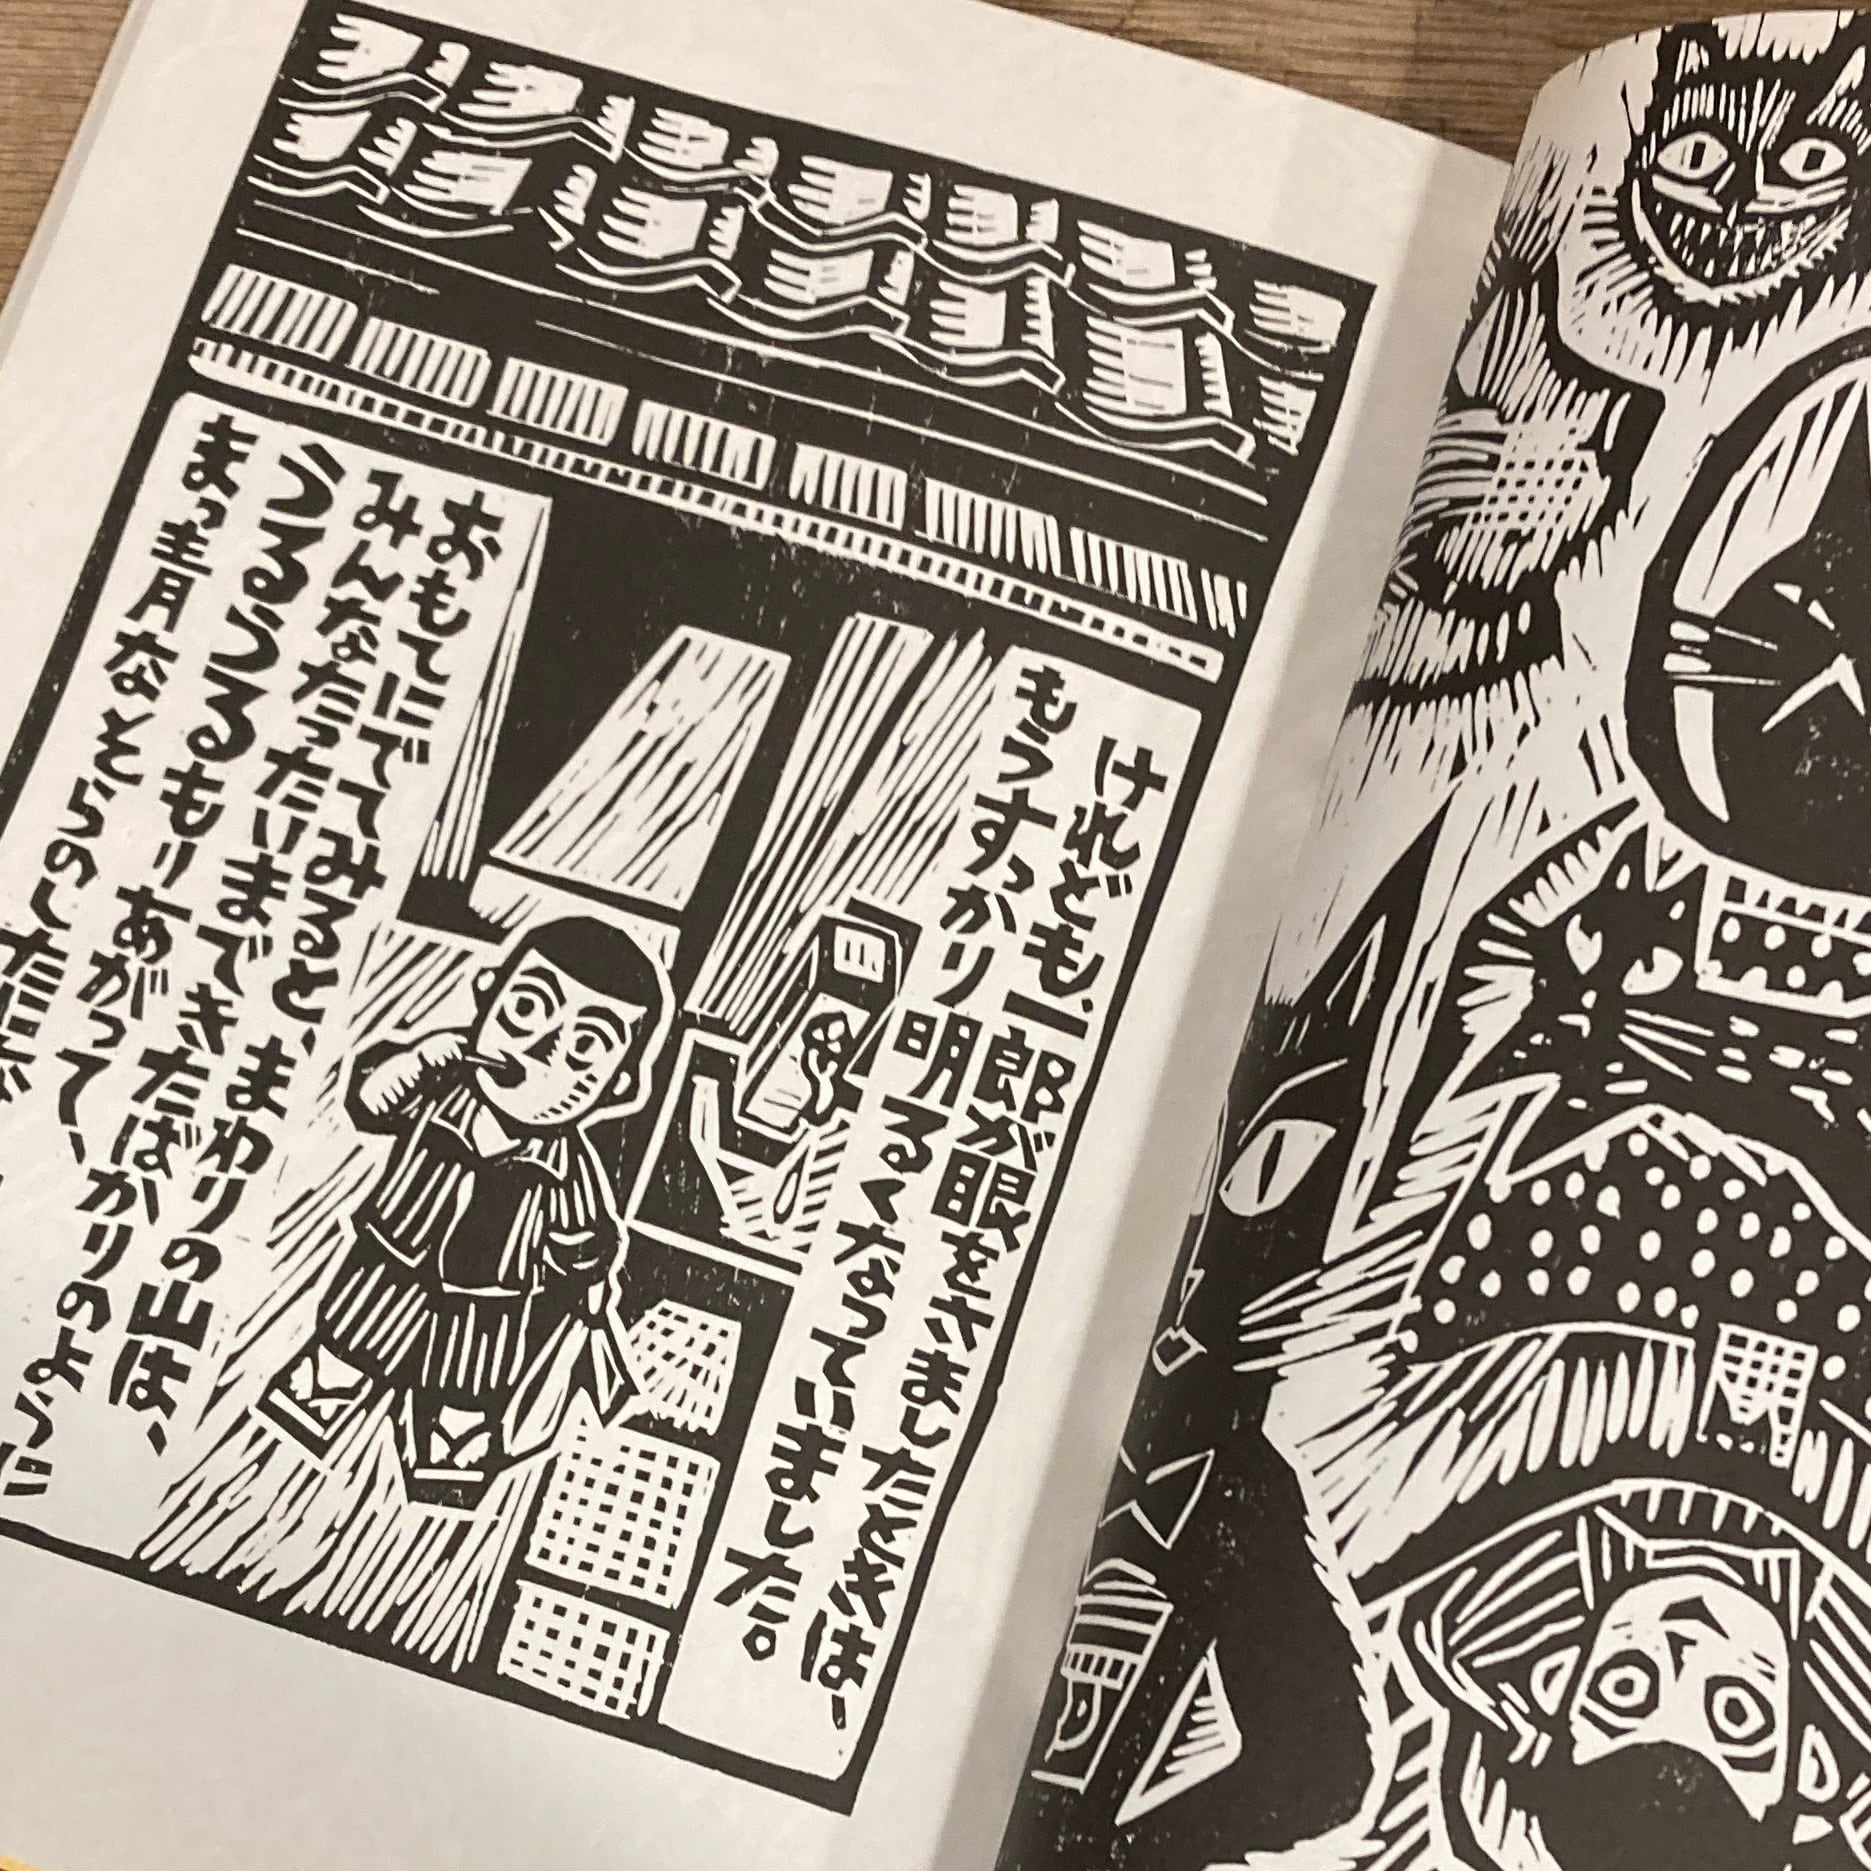 けれども、一郎が眼をさましたときは、
もうすっかり明るくなっていました。
おもてにでてみると、まわりの山は、
みんなたったいまできたばかりのように
うるうるもりあがって、
まっ青なそらのしたに